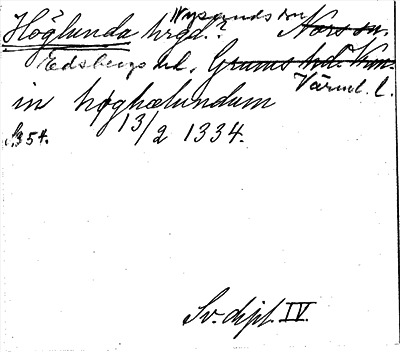 Höglunda hrgd.? Nysunds sn. Nors sn.
Edsbergs hd. Grums hd. Värml. l.
in høghælundum
S. 354. 13/2 1334.
Sv. dipl. IV.